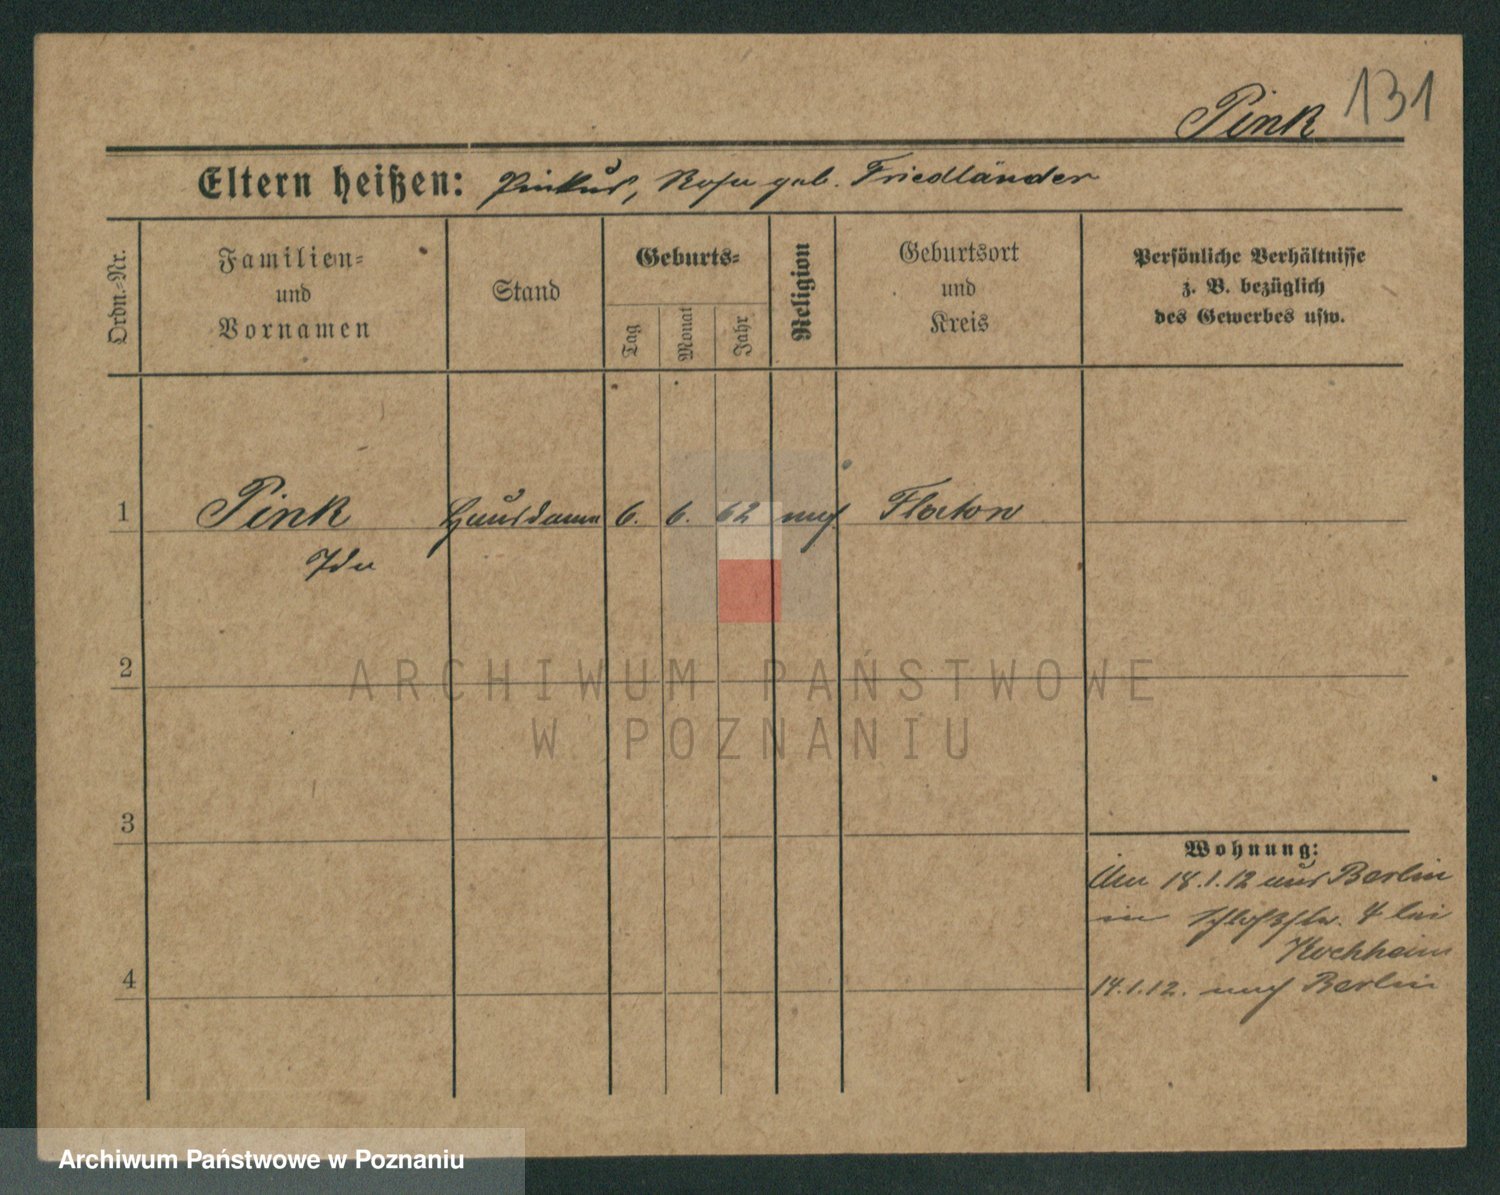 Pink 131
Eltern heißen: Pinkus, Rosa geb. Friedländer
Ordn.-Nr.
Familien-
und
Vornamen
Stand
Geburts-
Tag
Monat
Jahr
Religion
Geburtsort
und
Kreis
Persönliche Verhältnisse
z. B. bezüglich
des Gewerbes usw.
1 Pink Hausdame 6. 6. 62 Flatow
Ida
2
ARCHIWUM PAŃSTWOWE
W POZNANIU
3
Wohnung:
18.1.12 aus Berlin
in Schloßstr. 4 bei
Kochheim
14.1.12. nach Berlin
4
Archiwum Państwowe w Poznaniu